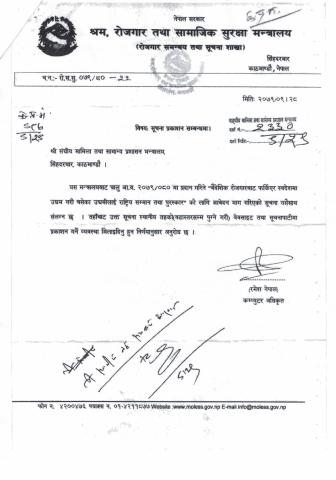 नेपाल सरकार
श्रम, रोजगार तथा सामाजिक सुरक्षा मन्त्रालय
(रोजगार समन्वय तथा सूचना शाखा)
सिंहदरबार
काठमाण्डौ, नेपाल
प.न.:- रो.स.सू. ०७९/८०
मिति: २०७९।०९।२८
विषय: सूचना प्रकाशन सम्बन्धमा।
श्री संघीय मामिला तथा सामान्य प्रशासन मन्त्रालय,
सिंहदरबार, काठमाण्डौ ।
यस मन्त्रालयबाट चालु आ.व. २०७९/०८० मा प्रदान गरिने "वैदेशिक रोजगारबाट फर्किएर स्वदेशमा
उद्यम गरी बसेका उद्यमीलाई राष्ट्रिय सम्मान तथा पुरस्कार" को लागि आवेदन माग गरिएको सूचना यसैसाथ
संलग्न छ । तहाँबाट उक्त सूचना स्थानीय तहको(वडास्तरसम्म पुग्ने गरी) वेबसाइट तथा सूचनापाटीमा
प्रकाशन गर्ने व्यवस्था मिलाइदिनु हुन निर्णयानुसार अनुरोध छ ।
(रमेश नेपाल)
कम्प्युटर अधिकृत
फोन नं. ४२००४७६ फ्याक्स नं. ०१-४२११८७७ Website :www.moless.gov.np E-mail:info@moless.gov.np